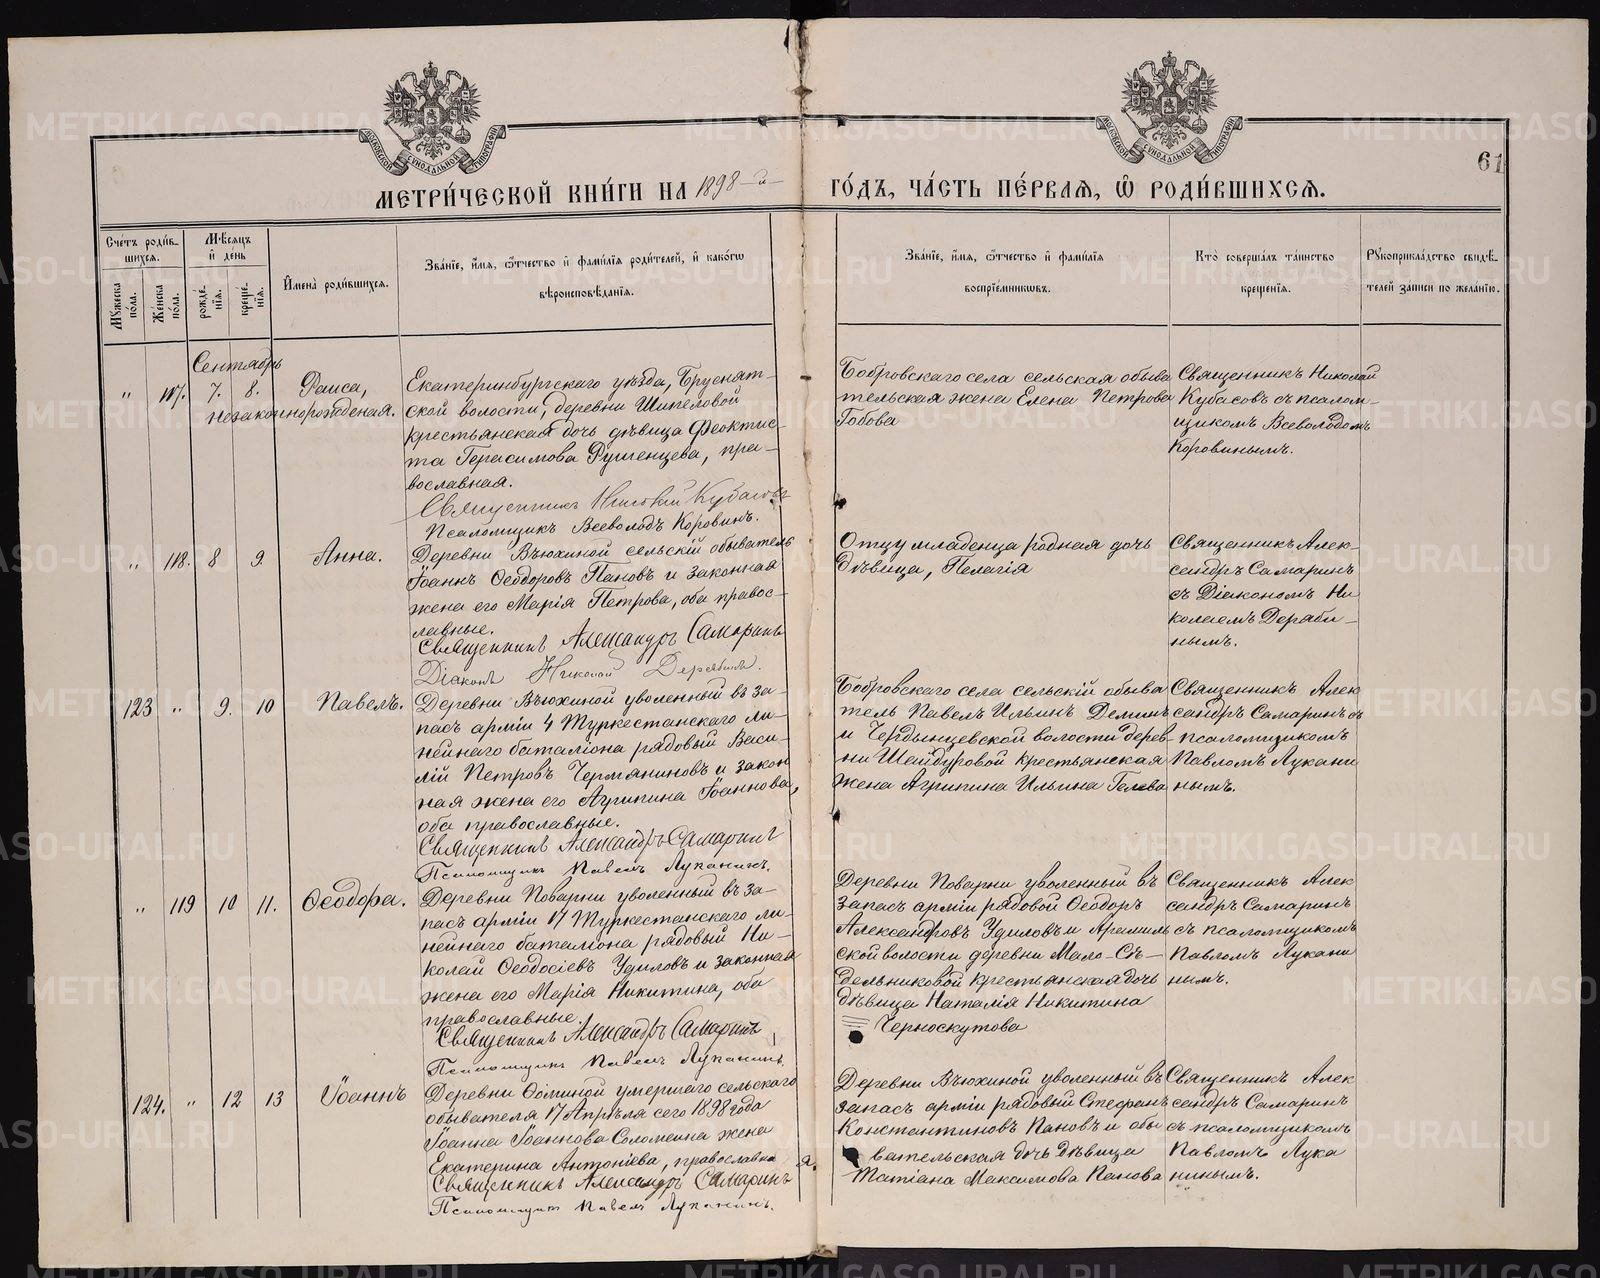 МОСКОВСКОЙ СѴНОДАЛЬНОЙ ТИПОГРАФІИ
МОСКОВСКОЙ СѴНОДАЛЬНОЙ ТИПОГРАФІИ
61
МЕТРИ́ЧЕСКОЙ КНИ́ГИ НА 1898-й
ГО́ДЪ, ЧА́СТЬ ПЕ́РВАѦ, Ѡ҆ РОДИ́ВШИХСѦ.
Сче́тъ роди́в-
шихсѧ.
Мꙋ́жеска по́ла.
Же́нска по́ла.
Мѣ́сѧцъ
и҆ де́нь
рожде́-
нїѧ.
креще́-
нїѧ.
И҆мена̀ роди́вшихсѧ.
Зва́нїе, и҆́мѧ, ѻ҆́тчество и҆ фами́лїѧ роди́телей, и҆ како́гѡ
вѣроисповѣ́данїѧ.
Зва́нїе, и҆́мѧ, ѻ҆́тчество и҆ фами́лїѧ
воспрїе́мникѡвъ.
Кто̀ соверша́лъ та́инство
креще́нїѧ.
Рꙋкоприкла́дство свидѣ́-
телей за́писи по жела́нїю.
Сентябрь
" 117. 7. 8. Раиса,
незаконнорожденая.
Екатеринбургскаго уѣзда, Бруснят-
ской волости, деревни Шипеловой
крестьянская дочь дѣвица Феоктис-
та Герасимова Рушенцева, пра-
вославная.
Священникъ Николай Кубасовъ
Псаломщикъ Всеволодъ Коровинъ.
Бобровскаго села сельская обыва
тельская жена Елена Петрова
Гобова
Священникъ Николай
Кубасовъ съ псалом-
щикомъ Всеволодомъ
Коровинымъ.
" 118. 8 9. Анна.
Деревни Вьюхиной сельскій обыватель
Іоаннъ Ѳеодоровъ Пановъ и законная
жена его Марія Петрова, оба правос-
лавные.
Священникъ Александръ Самаринъ
Діаконъ Николай Дерябинъ.
Отцу младенца родная дочь
дѣвица, Пелагія
Священникъ Алек-
сандръ Самаринъ
съ Діакономъ Ни
колаемъ Деряби-
нымъ.
123 " 9. 10 Павелъ.
Деревни Вьюхиной уволенный въ за-
пасъ арміи 4 Туркестанскаго ли-
нейнаго баталіона рядовый Васи-
лій Петровъ Чермяниновъ и закон
ная жена его Агрипина Іоаннова,
оба православные.
Священникъ Александръ Самаринъ
Псаломщикъ Павелъ Луканинъ.
Бобровскаго села сельскій обыва
тель Павелъ Ильинъ Деминъ
и Чердынцевской волости дерев-
ни Шейдуровой крестьянская
жена Агрипина Ильина Голева
Священникъ Алек
сандръ Самаринъ съ
псаломщикомъ
Павломъ Лукани
нымъ.
" 119 10 11. Ѳеодора.
Деревни Поварни уволенный въ за-
пасъ арміи 17 Туркестанскаго ли-
нейнаго баталіона рядовый Ни-
колай Ѳеодосіевъ Удиловъ и законная
жена его Марія Никитина, оба
православные.
Священникъ Александръ Самаринъ
Псаломщикъ Павелъ Луканинъ.
Деревни Поварни уволенный въ
запасъ арміи рядовой Ѳеодоръ
Александровъ Удиловъ и Арамиль
ской волости деревни Мало-Сѣ-
дельниковой крестьянская дочь
дѣвица Наталія Никитина
Черноскутова
Священникъ Алек
сандръ Самаринъ
съ псаломщикомъ
Павломъ Лукани
нымъ.
124. " 12 13 Іоаннъ
Деревни Ѳоминой умершаго сельскаго
обывателя 17 Апрѣля сего 1898 года
Іоанна Іоаннова Соломеина жена
Екатерина Антоніева, православная.
Священникъ Александръ Самаринъ
Псаломщикъ Павелъ Луканинъ.
Деревни Вьюхиной уволенный въ
запасъ арміи рядовый Стефанъ
Константиновъ Пановъ и обы
вательская дочь дѣвица
Татіана Максимова Панова
Священникъ Алек
сандръ Самаринъ
съ псаломщикомъ
Павломъ Лука
нинымъ.
METRIKI.GASO-URAL.RU